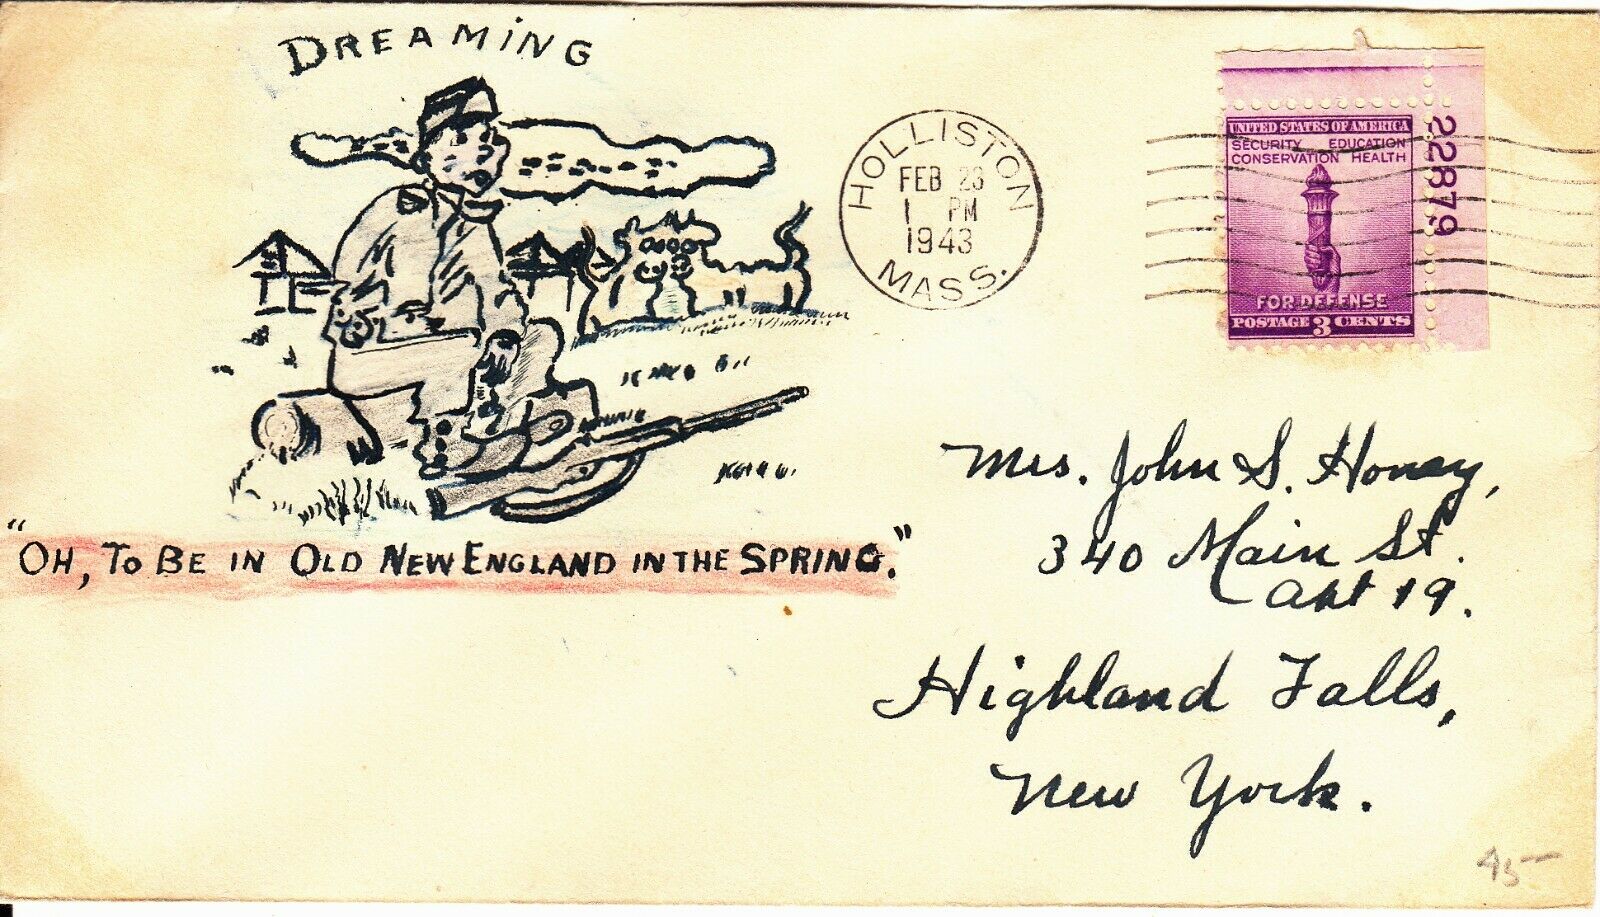 DREAMING
"OH, TO BE IN OLD NEW ENGLAND IN THE SPRING."
HOLLISTON
FEB 23
1 PM
1943
MASS.
UNITED STATES OF AMERICA
SECURITY EDUCATION
CONSERVATION HEALTH
FOR DEFENSE
POSTAGE 3 CENTS
22879
Mrs. John S. Honey,
340 Main St.
Apt 19.
Highland Falls,
New York.